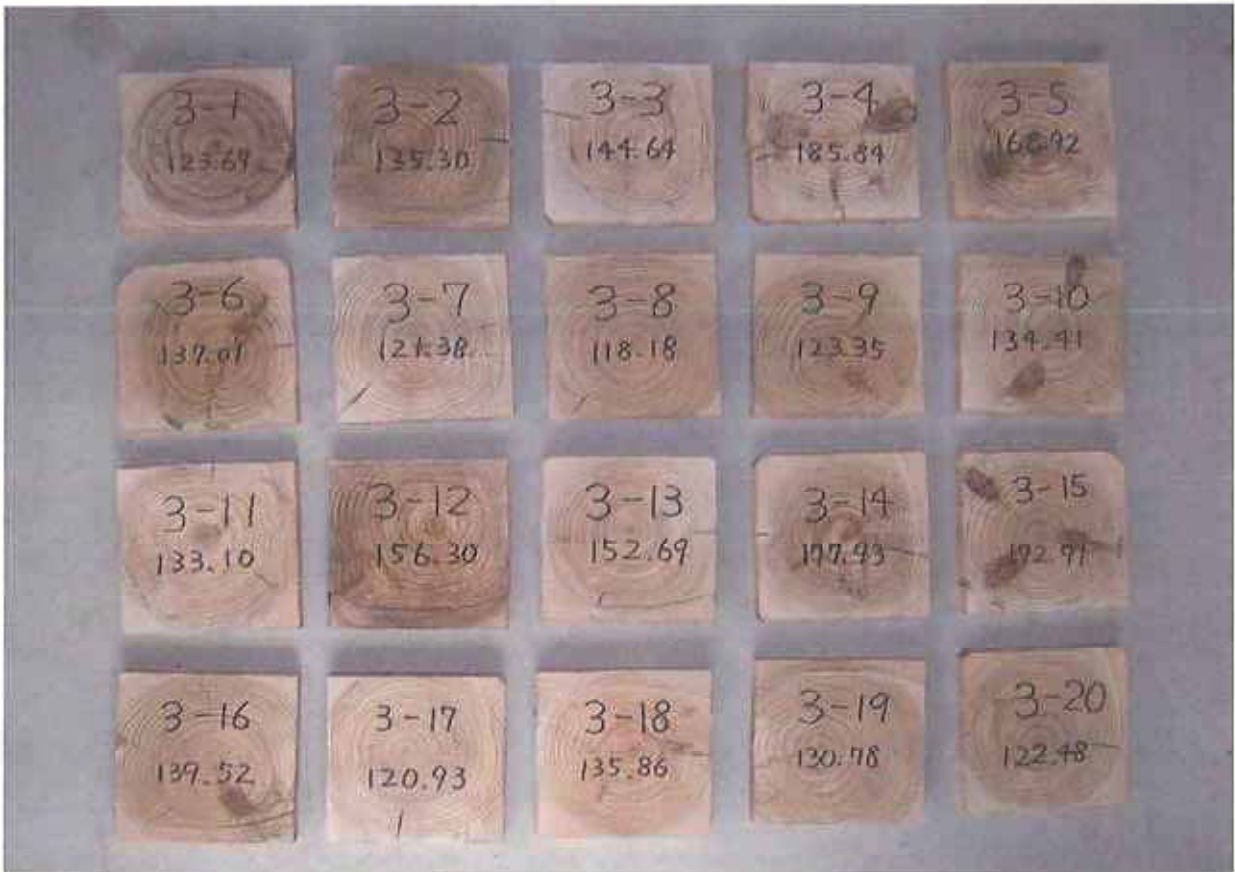 3-1
123.69
3-2
135.30
3-3
144.64
3-4
185.84
3-5
168.92
3-6
137.01
3-7
121.38
3-8
118.18
3-9
123.35
3-10
134.41
3-11
133.10
3-12
156.30
3-13
152.69
3-14
177.93
3-15
172.71
3-16
139.52
3-17
120.93
3-18
135.86
3-19
130.78
3-20
122.48